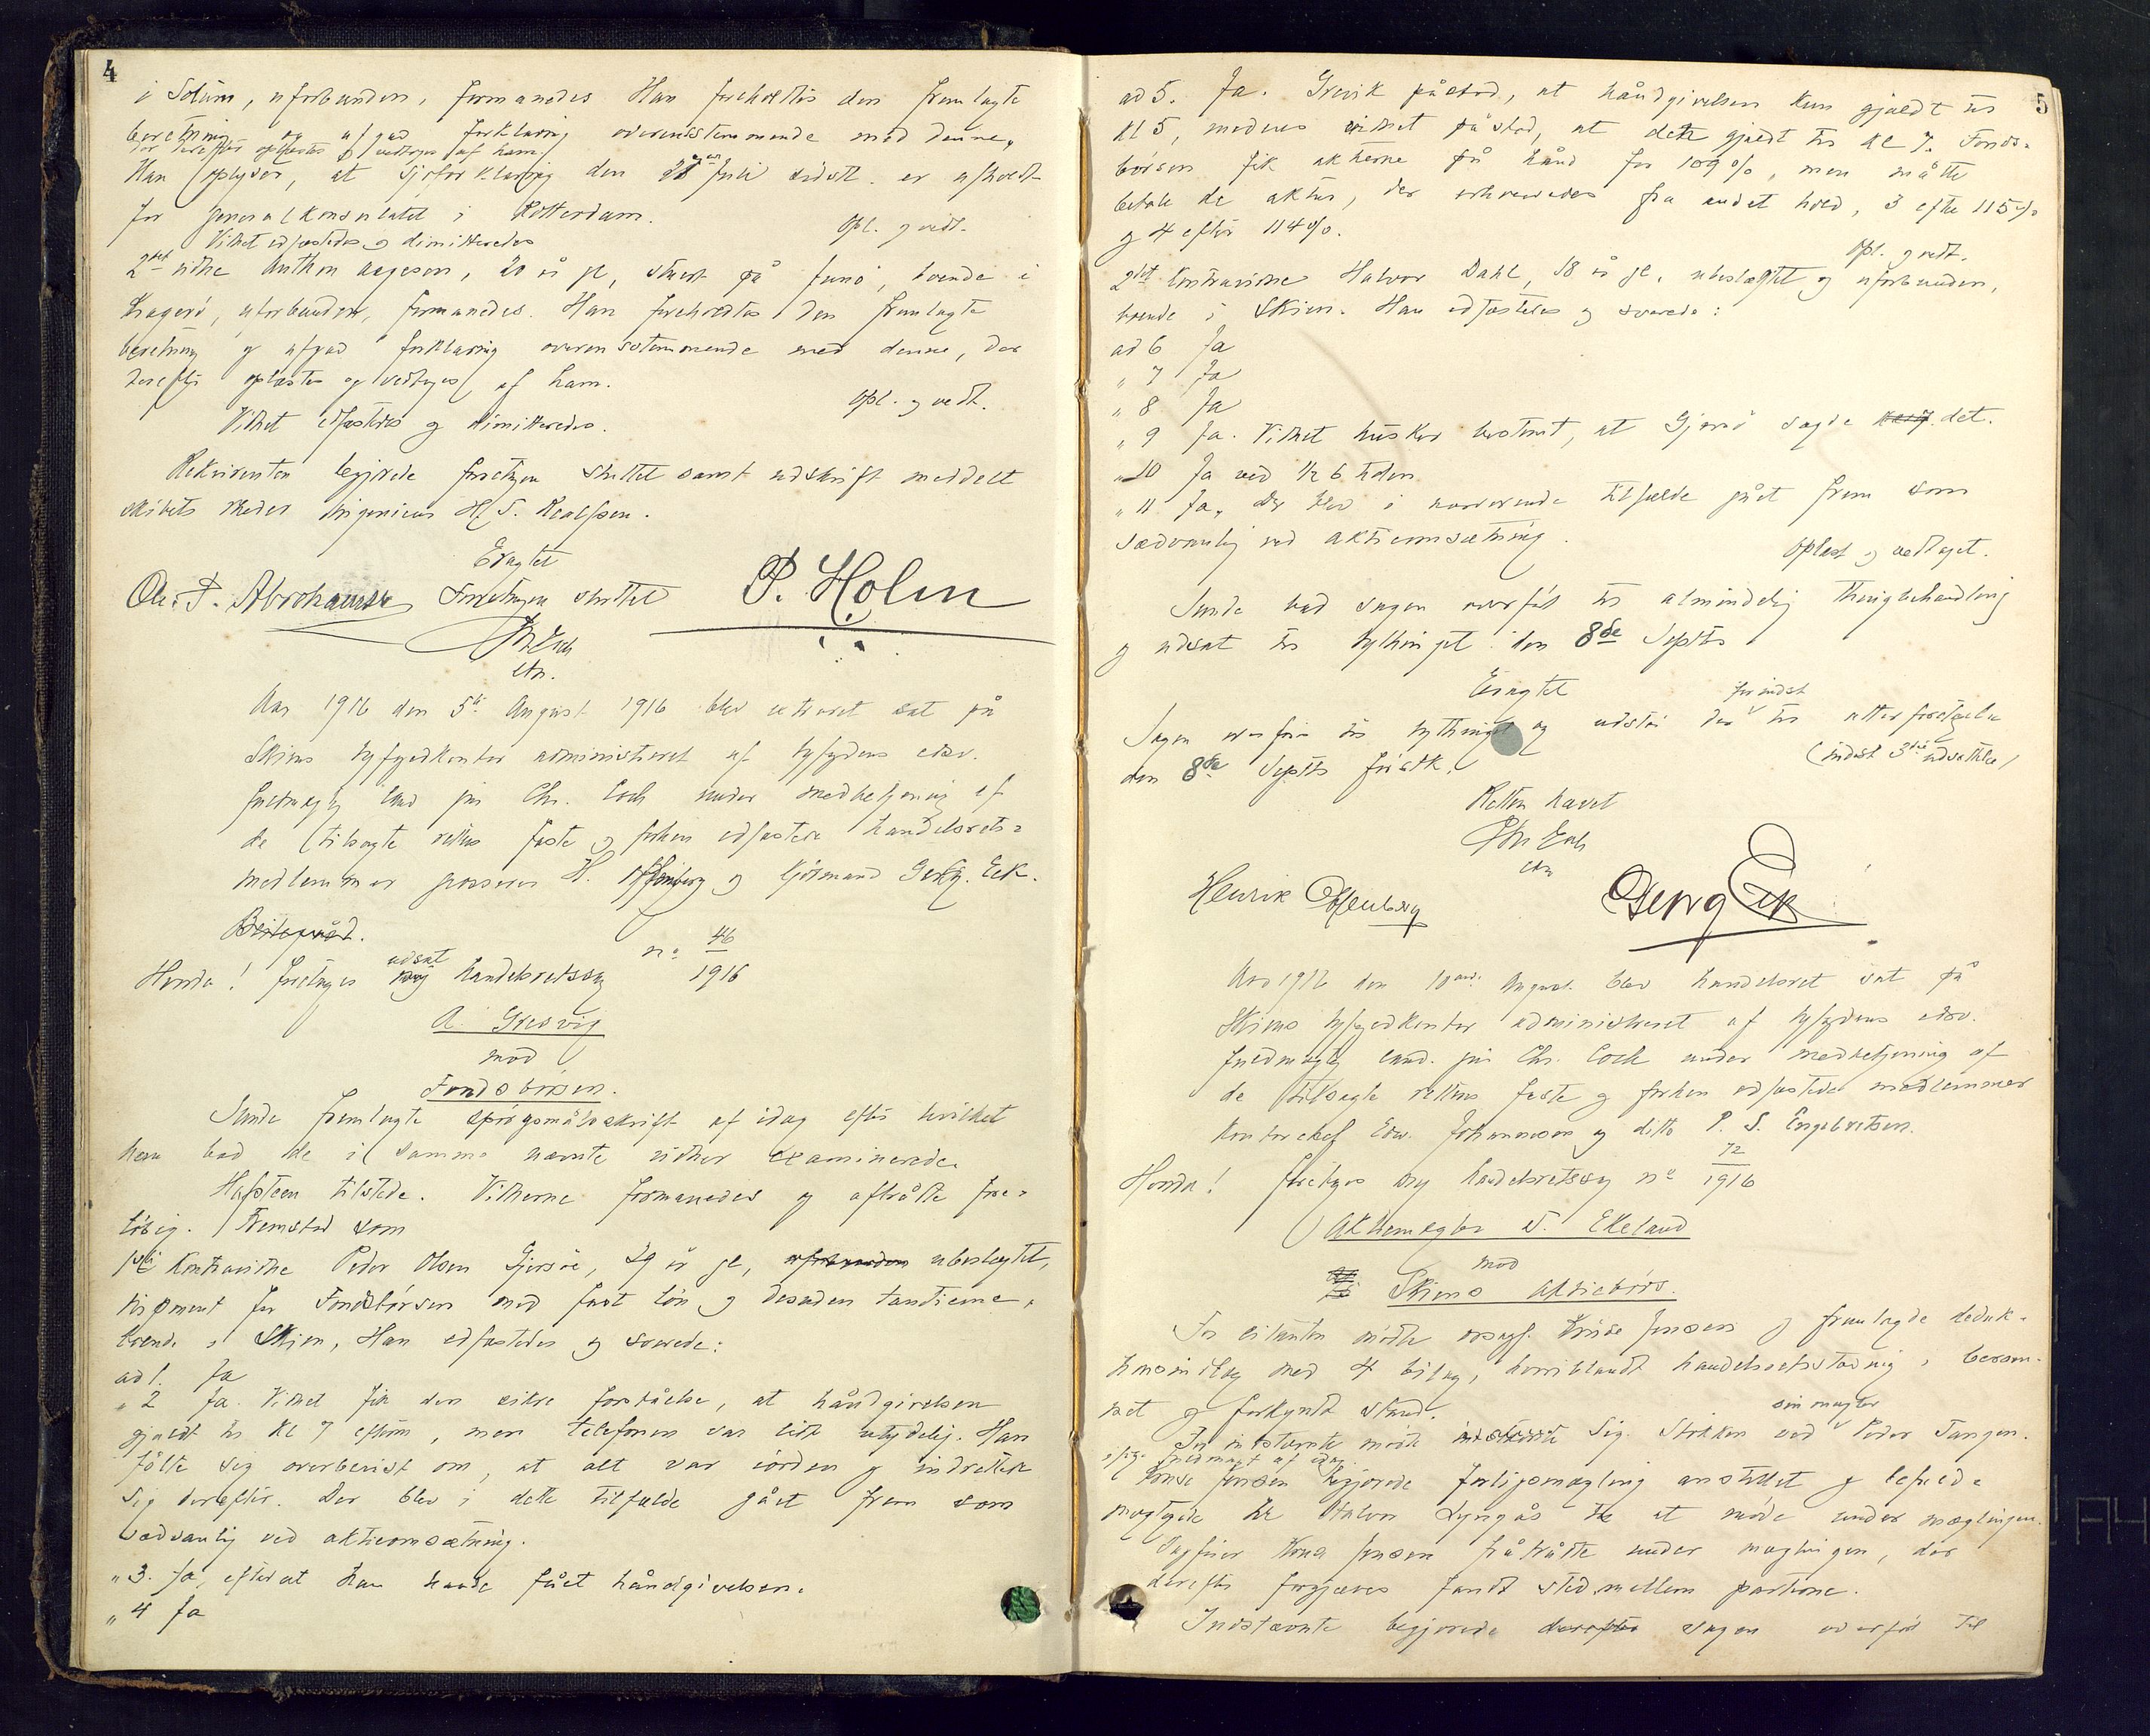 4
i Solum, uforbunden, formanedes. Han foreholdtes den fremlagte
beretning og afgad forklaring overensstemmende med denne,
der derefter oplæstes og vedtoges af ham.
Han oplyser, at sjøforklaring den Juli sidstl. er afholdt
for generalkonsulatet i Rotterdam.
Opl. og vedt.
Vidnet edfæstedes og dimitteredes
2det vidne Anthon Aagesen, 20 år gl., på Juno, boende i
Kragerø, uforbunden, formanedes. Han foreholdtes den fremlagte
beretning og afgad forklaring overensstemmende med denne, der
derefter oplæstes og vedtoges af ham.
Opl. og vedt.
Vidnet edfæstedes og dimitteredes.
Rekvirenten begjærede forretningen sluttet samt udskrift meddelt
skibets reder ingeniør H. S. Realfsen.
Eragtet
Chr. P. Abrahamsen Forretningen sluttet P. Holm
Chr Coch
edsv.
Aar 1916 den 5te August 1916 blev extraret sat på
Skiens byfogedkontor administreret af byfogdens edsv.
fuldmægtig Cand jur Chr. Coch under medbetjening af
de tilsagte rettens faste og forhen edfæstede handelsrets-
medlemmer grosserer H. Offenberg og kjøbmand Georg Eek.
Hvorda! foretages udsat handelsretssag no 46
1916
A. Gresvig
mod
Fondsbørsen.
Sunde fremlagte spørgsmålsskrift af idag efter hvilket
han bad de i samme nævnte vidner examinerede.
Hafsteen tilstede. Vidnerne formanedes og aftrådte fore-
løbig. Fremstod som
1ste Kontravidne Peder Olsen Gjersøe, 29 år gl., ubeslægtet,
disponent for Fondsbørsen med fast løn og desuden tantieme,
boende i Skien. Han edfæstedes og svarede:
ad 1. Ja
" 2 Ja. Vidnet fik den sikre forståelse, at håndgivelsen
gjaldt til Kl 7 efterm, men telefonen var lidt utydelig. Han
følte sig overbevist om, at alt var iorden og indrettede
sig derefter. Der blev i dette tilfælde gået frem som
sædvanlig ved aktieomsætning.
" 3. Ja, efterat han havde fået håndgivelsen.
" 4 Ja
5
ad 5. Ja. Grevik påstod, at håndgivelsen kun gjaldt til
Kl 5, medens vidnet påstod, at dette gjaldt til Kl 7. Fonds-
børsen fik aktierne på hånd for 109 %, men måtte
betale de aktier, der erhvervedes fra andet hold, 3 efter 115 %
og 4 efter 114 %.
Opl. og vedt.
2det Kontravidne Halvor Dahl, 18 år gl., ubeslægtet og uforbunden,
boende i Skien. Han edfæstedes og svarede:
ad 6 Ja
" 7 Ja
" 8 Ja
" 9 Ja. Vidnet husker bestemt, at Gjersø sagde det.
" 10 Ja ved 1/2 6 tiden
" 11 Ja, der blev i nærværende tilfælde gået frem som
sædvanlig ved aktieomsætning.
Oplæst og vedtaget.
Sunde bad sagen overført til almindelig thingbehandling
og udsat til bythinget den 8de Septbr
Eragtet
Sagen overføres til bythinget og udstår der forindst til atter foretagelse
den 8de Septbr førstk. (indst 3die udsættelse)
Retten hævet
Chr Coch
edsv
Henrik Offenberg Georg Eek
Aar 1916 den 10de August blev handelsret sat på
Skiens byfogedkontor administreret af byfogdens edsv.
fuldmægtig cand. jur Chr. Coch under medbetjening af
de tilsagte rettens faste og forhen edfæstede medlemmer
Kontorchef Edw. Johannesen og ditto P. S. Engebretsen.
Hvorda! foretages ny handelsretssag no 72
1916
Aktiemægler N. Ekeland
mod
Skiens Aktiebørs.
For citanten mødte orsagf. Kruse Jensen og fremlagde deduk-
tionsindlæg med 4 bilag, hvoriblandt handelsretsstævning i beram-
met og forkyndt stand.
For indstævnte mødte Sig. Stokken ved sin mægler Peder Tangen.
ifølge fuldmagt af idag.
Kruse Jensen begjærede forligsmægling anstillet og befuld-
mægtigede hr Halvor Lyngås til at møde under mæglingen.
Sagfører Kruse Jensen fråtrådte under mæglingen, der
derefter forgjæves fandt sted mellem parterne.
Indstævnte begjærede sagen overført til